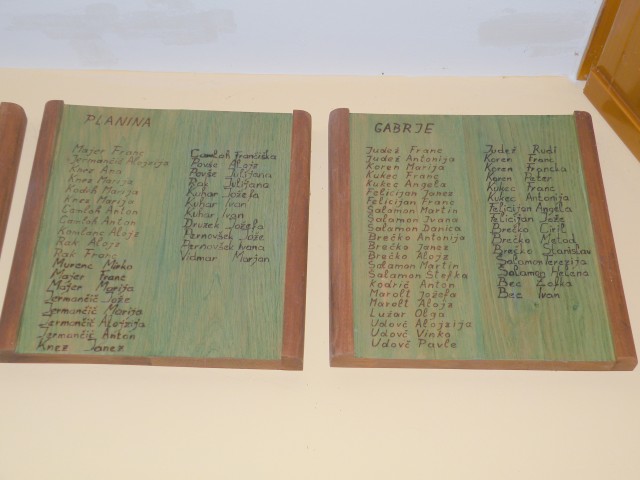 PLANINA
Majer Franc
Jermančič Alojzija
Knez Ana
Knez Marija
Kodrič Marija
Knez Marija
Camloh Anton
Camloh Anton
Alojz
Rak Alojz
Rak Franc
Murenc Mirko
Majer Franc
Majer Marija
Jermančič Jože
Jermančič Marija
Jermančič Alojzija
Jermančič Anton
Knez Janez
Camloh Frančiška
Povše Alojz
Povše Julijana
Rak Julijana
Kuhar Jožefa
Kuhar Ivan
Kuhar Ivan
Druzek Jožefa
Pernovšek Jože
Pernovšek Ivana
Vidmar Marjan
GABRJE
Judež Franc
Judež Antonija
Koren Marija
Kukec Franc
Kukec Angela
Felicijan Janez
Felicijan Franc
Salamon Martin
Salamon Ivana
Salamon Danica
Brečko Antonija
Brečko Janez
Brečko Alojz
Salamon Martin
Salamon Štefka
Kodrič Anton
Marolt Jožefa
Marolt Alojz
Lužar Olga
Udovč Alojzija
Udovč Vinko
Udovč Pavle
Judež Rudi
Koren Franc
Koren Franciska
Koren Peter
Kukec Franc
Kukec Antonija
Felicijan Angela
Felicijan Jože
Brečko Ciril
Brečko Metod
Brečko Stanislav
Salamon Terezija
Salamon Helena
Bec Zofka
Bec Ivan